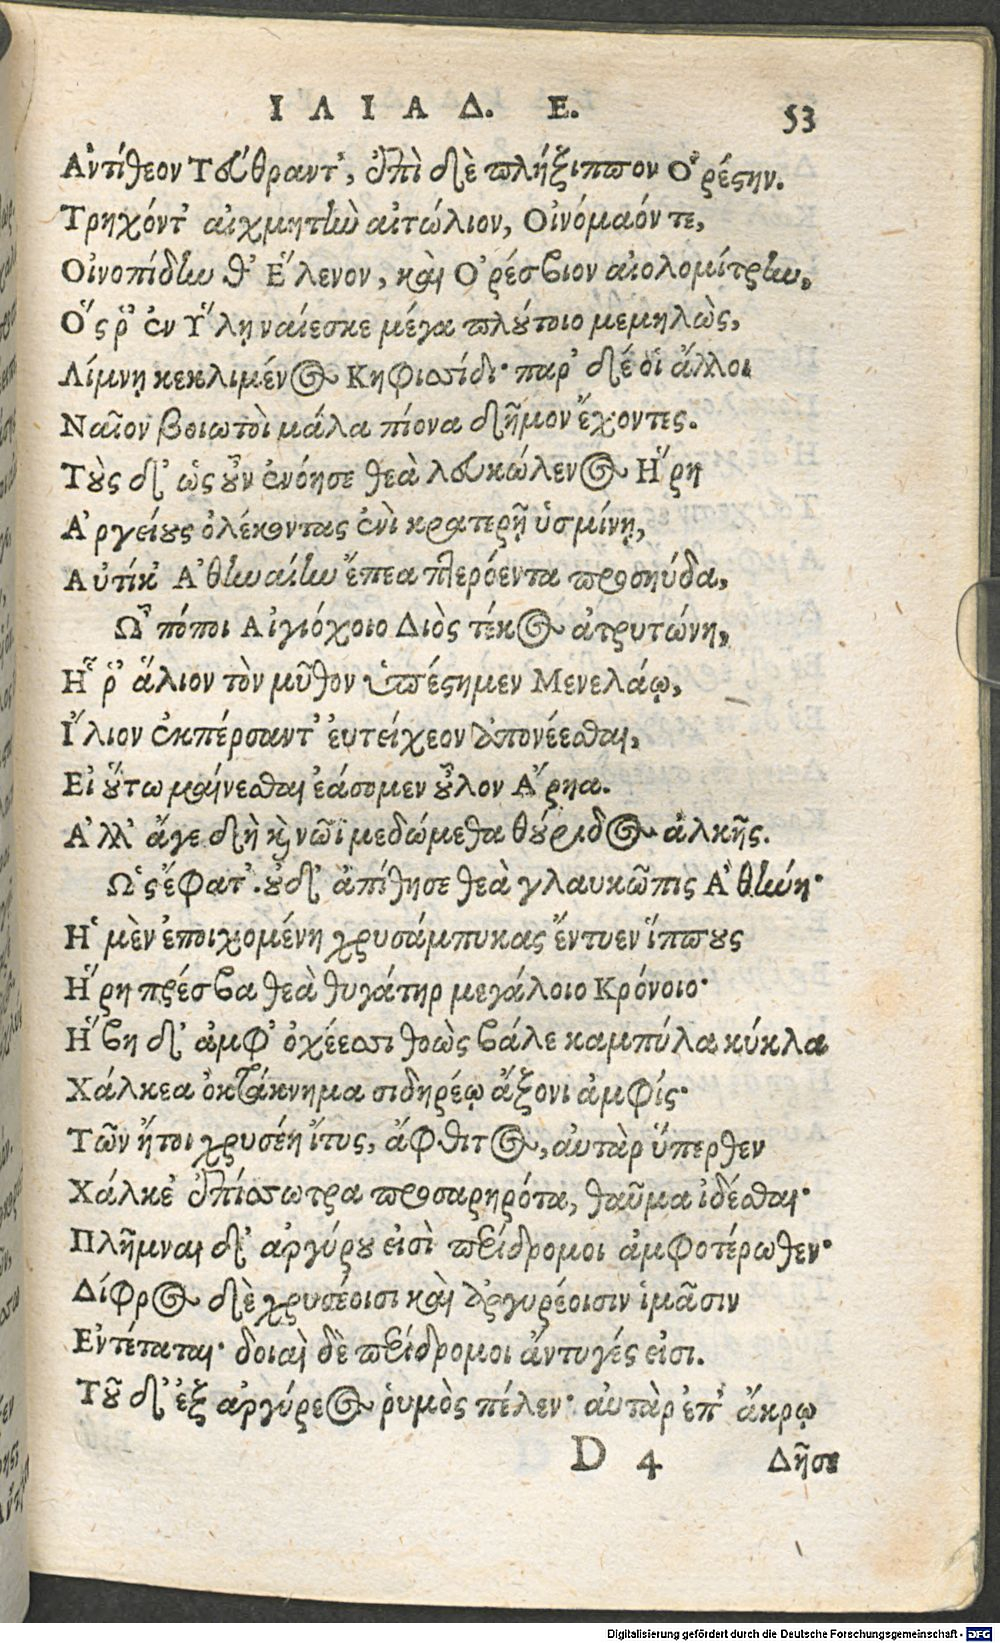 ΙΛΙΑΔ. Ε. 53
Ἀντίθεον Τεύθραντ', ἐπὶ δὲ πλήξιππον Ὀρέστην.
Τρηχόντ' αἰχμητὴν αἰτώλιον, Οἰνόμαόν τε,
Οἰνοπίδην θ' Ἕλενον, καὶ Ὀρέσβιον αἰολομίτρην,
Ὅς ῥ' ἐν Ὕλῃ ναίεσκε μέγα πλούτοιο μεμηλὼς,
Λίμνῃ κεκλιμένος Κηφισσίδι· παρ' δέ οἱ ἄλλοι
Ναῖον βοιωτοὶ μάλα πίονα δῆμον ἔχοντες.
Τοὺς δ' ὡς οὖν ἐνόησε θεὰ λευκώλενος Ἥρη
Ἀργείους ὀλέκοντας ἐνὶ κρατερῇ ὑσμίνῃ,
Αὐτίκ' Ἀθηναίην ἔπεα πτερόεντα προσηύδα,
Ὦ πόποι Αἰγιόχοιο Διὸς τέκος ἀτρυτώνη,
Ἦ ῥ' ἅλιον τὸν μῦθον ὑπέστημεν Μενελάῳ,
Ἴλιον ἐκπέρσαντ' ἐυτείχεον ἀπονέεσθαι,
Εἰ οὕτω μαίνεσθαι ἐάσομεν οὖλον Ἄρηα.
Ἀλλ' ἄγε δὴ καὶ νῶϊ μεδώμεθα θούριδος ἀλκῆς.
Ὣς ἔφατ'. οὐδ' ἀπίθησε θεὰ γλαυκῶπις Ἀθήνη·
Ἡ μὲν ἐποιχομένη χρυσάμπυκας ἔντυεν ἵππους
Ἥρη πρέσβα θεὰ θυγάτηρ μεγάλοιο Κρόνοιο·
Ἥβη δ' ἀμφ' ὀχέεσσι θοῶς βάλε καμπύλα κύκλα
Χάλκεα ὀκτάκνημα σιδηρέῳ ἄξονι ἀμφίς·
Τῶν ἤτοι χρυσέη ἴτυς, ἄφθιτος, αὐτὰρ ὕπερθεν
Χάλκε' ἐπίσσωτρα προσαρηρότα, θαῦμα ἰδέσθαι·
Πλῆμναι δ' ἀργύρου εἰσὶ περίδρομοι ἀμφοτέρωθεν·
Δίφρος δὲ χρυσέοισι καὶ ἀργυρέοισιν ἱμᾶσιν
Ἐντέταται· δοιαὶ δὲ περίδρομοι ἄντυγές εἰσι.
Τοῦ δ' ἐξ ἀργύρεος ῥυμὸς πέλεν· αὐτὰρ ἐπ' ἄκρῳ
D 4 Δῆσε
Digitalisierung gefördert durch die Deutsche Forschungsgemeinschaft - DFG